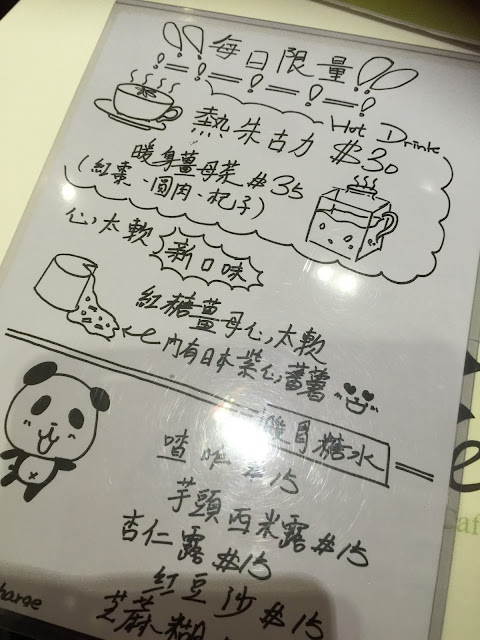 每日限量
Hot Drink
熱朱古力 $30
暖身薑母茶 #35
(紅棗、圓肉、杞子)
心太軟 新口味
紅糖薑母心太軟
內有日本紫心蕃薯
糖水
喳咋 #15
芋頭西米露 #15
杏仁露 #15
紅豆沙 #15
芝麻糊
harge